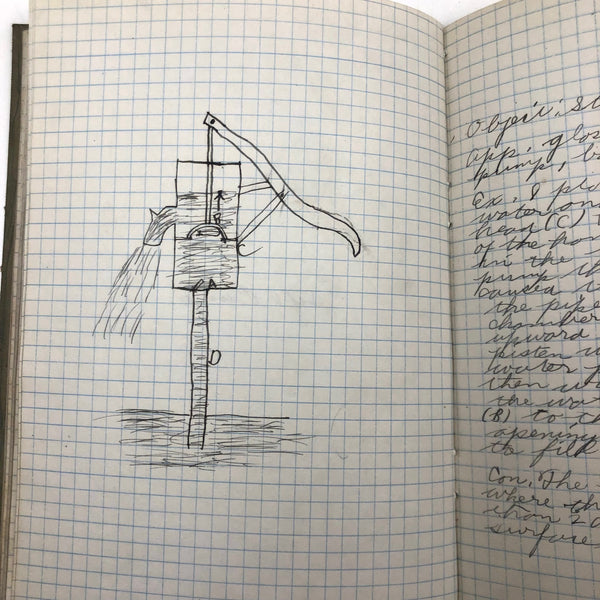 B
C
D
Object: St
app. glas
pump, b
Ex. I pla
water on
head (C)
of the han
in the
pump th
caused t
the pipe
chamber
upward
pisten w
water
then w
the wat
(B) to th
opening
to fill
Con. The
where th
than 20
surface